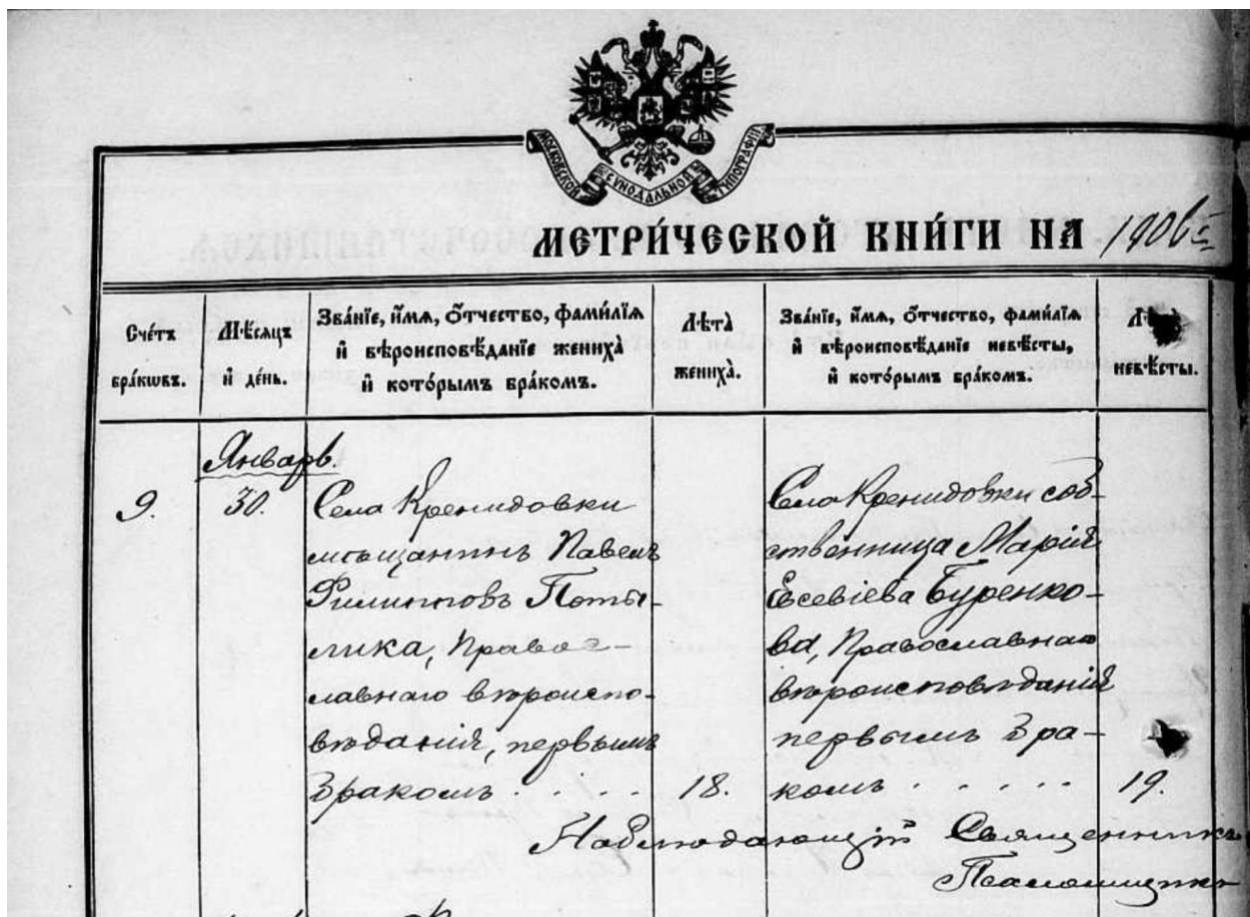 МОСКОВСКОЙ СѴНОДАЛЬНОЙ ТИПОГРАФІИ
МЕТРИ́ЧЕСКОЙ КНИ́ГИ НА 1906 г.
Сче́тъ бра́кѡвъ.
Мѣ́сяцъ и҆ де́нь.
Зва́нїе, и҆́мѧ, ѻ҆́тчество, фамилїѧ
и҆ вѣроисповѣ́данїе жениха̀
и҆ кото́рымъ бра́комъ.
Лѣта̀
жениха̀.
Зва́нїе, и҆́мѧ, ѻ҆́тчество, фамилїѧ
и҆ вѣроисповѣ́данїе невѣ́сты,
и҆ кото́рымъ бра́комъ.
невѣ́сты.
Январь.
9.
30.
Села Кренидовки
мѣщанинъ Павелъ
Филиповъ Поты-
лика, Правос-
лавнаго вѣроиспо-
вѣданія, первымъ
бракомъ . . . .
18.
Села Кренидовки соб-
ственница Марія
Евсевіева Буренко-
ва, Православнаго
вѣроисповѣданія
первымъ бра-
комъ . . . . .
19.
Наблюдающій Священникъ